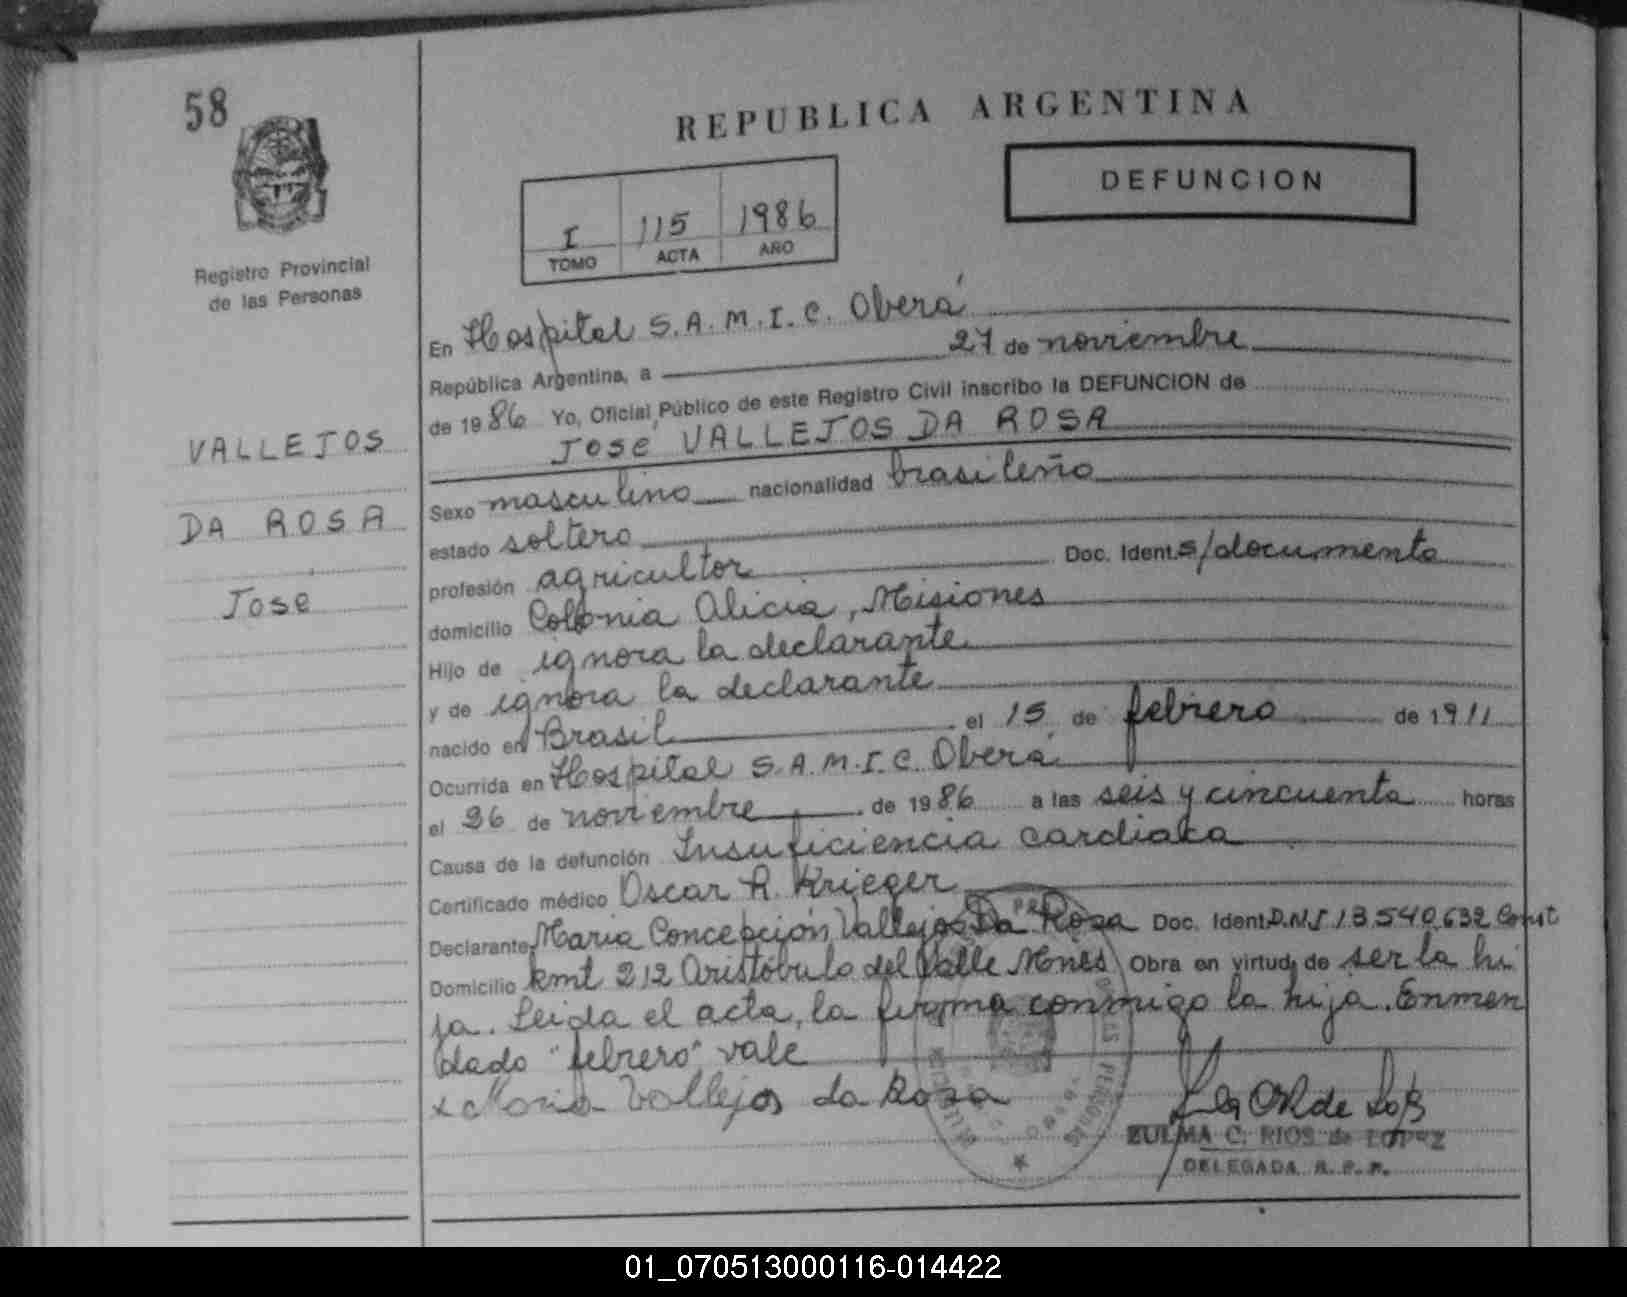 58
REPUBLICA ARGENTINA
DEFUNCION
I 115 1986
TOMO ACTA AÑO
Registro Provincial
de las Personas
VALLEJOS
DA ROSA
Jose
En Hospital S.A.M.I.C. Oberá
República Argentina, a 27 de noviembre
de 1986 Yo, Oficial Público de este Registro Civil inscribo la DEFUNCION de
Jose VALLEJOS DA ROSA
Sexo masculino nacionalidad brasileño
estado soltero
profesión agricultor Doc. Ident. s/documento
domicilio Colonia Alicia, Misiones
Hijo de ignora la declarante
y de ignora la declarante
nacido en Brasil el 15 de febrero de 1911
Ocurrida en Hospital S.A.M.I.C. Oberá
el 26 de noviembre de 1986 a las seis y cincuenta horas
Causa de la defunción Insuficiencia cardiaca
Certificado médico Oscar A. Krieger
Declarante Maria Concepción Vallejos Da Rosa Doc. Ident D.N.I 13.540.632 Const
Domicilio kmt 212 Aristóbulo del Valle Mnes Obra en virtud de ser la hi
ja. Leida el acta, la firma conmigo la hija. Enmen
dado "febrero" vale
x Maria Vallejos da Rosa
ZULMA C. RIOS de LOPEZ
DELEGADA R. P. P.
01_070513000116-014422